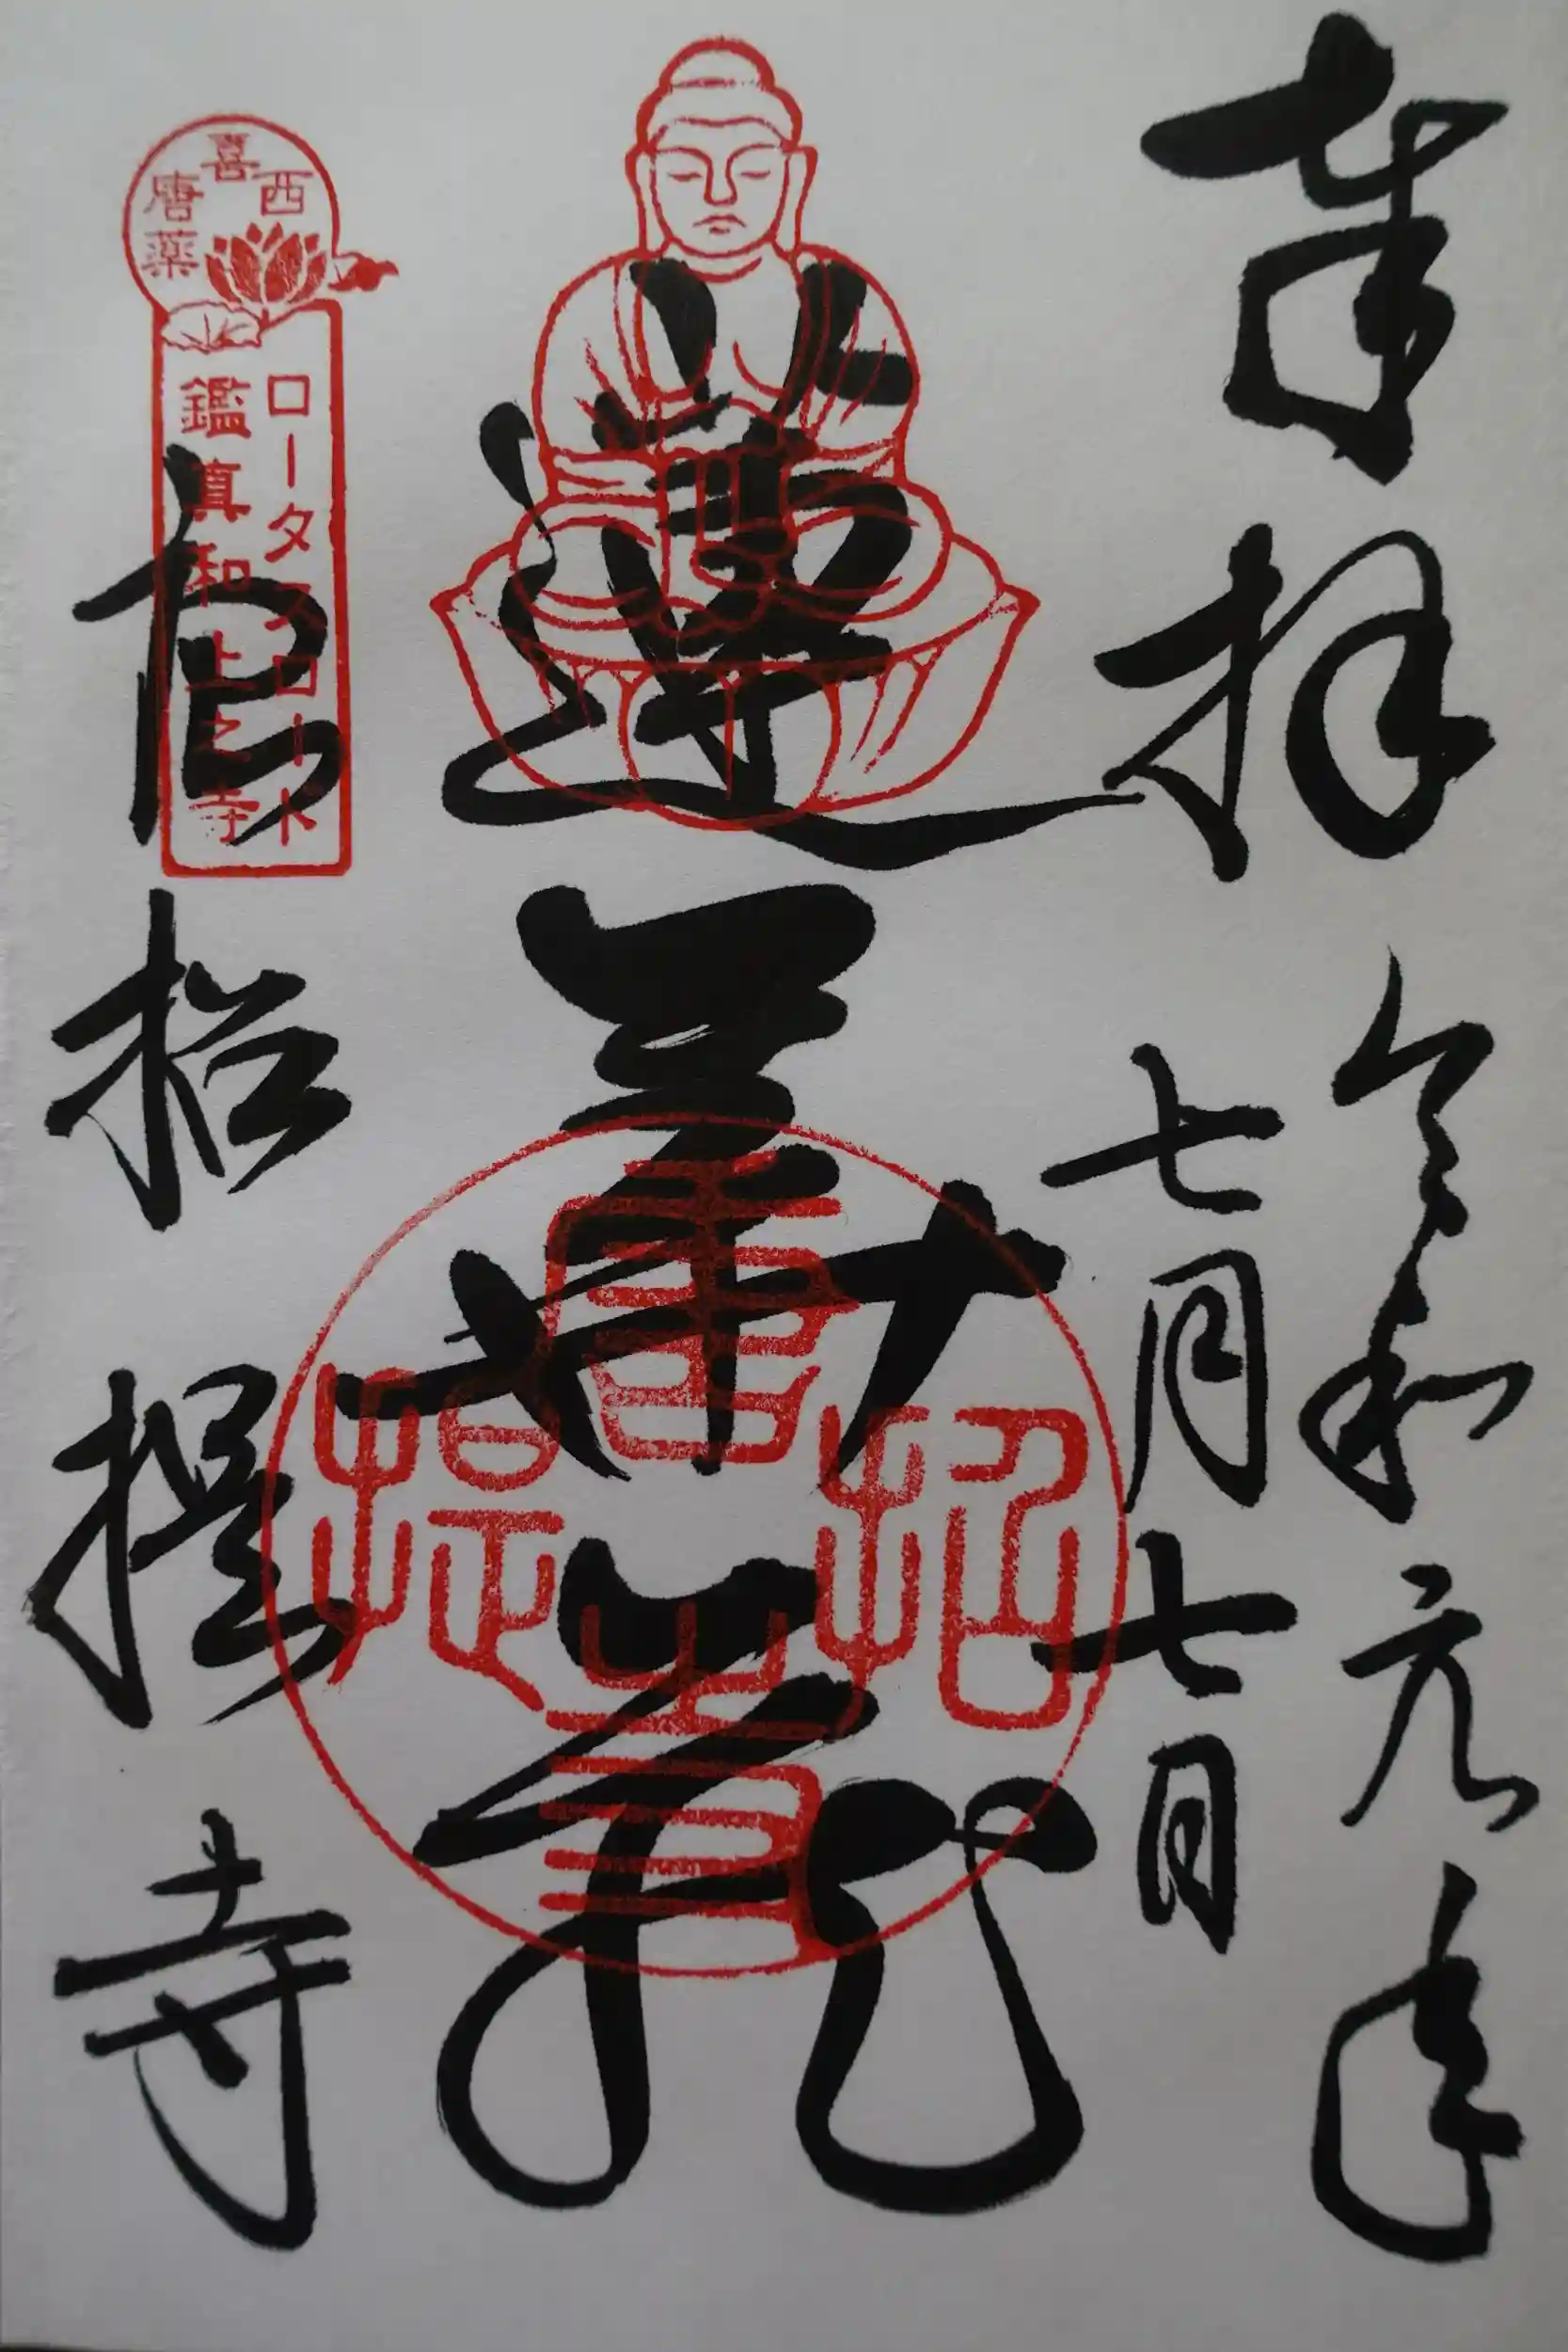 奉拝
令和元年
七月七日
蓮華
唐招提寺
西喜唐薬
ロータスロード
鑑真和上之寺
唐招提寺